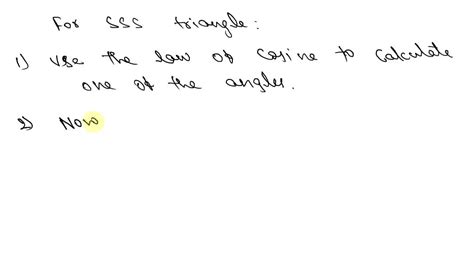 For SSS triangle:
1) Use the law of cosine to calculate
one of the angles.
2) Now